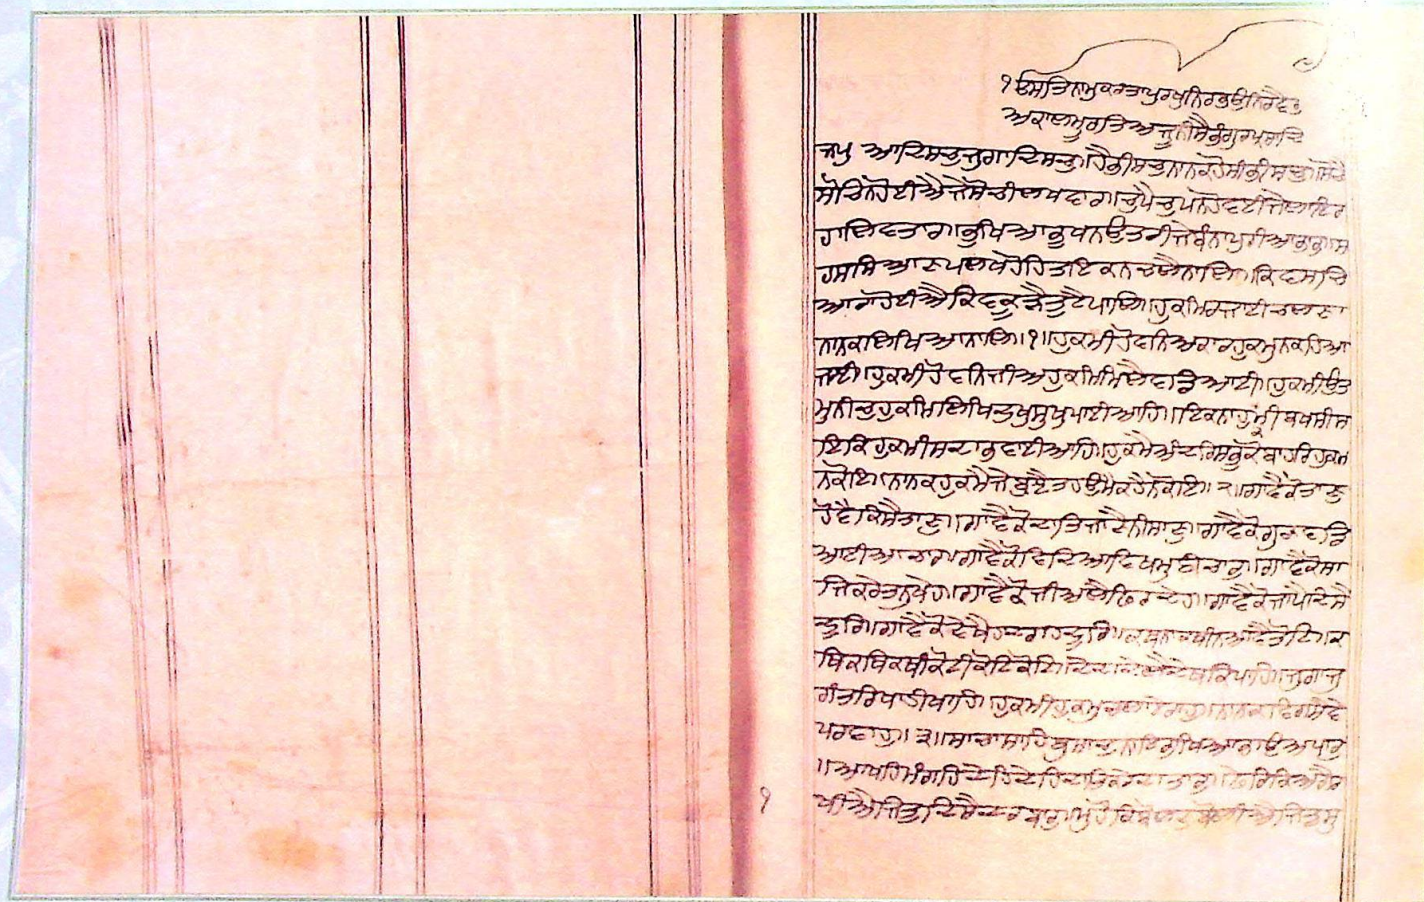 ੧ਓ ਸਤਿਨਾਮੁਕਰਤਾਪੁਰਖੁਨਿਰਭਉਨਿਰਵੈਰੁ
ਅਕਾਲਮੂਰਤਿਅਜੂਨੀਸੈਭੰਗੁਰਪ੍ਰਸਾਦਿ
ਜਪੁ ਆਦਿਸਚੁਜੁਗਾਦਿਸਚੁ॥ਹੈਭੀਸਚੁਨਾਨਕਹੋਸੀਭੀਸਚੁ॥ਸੋਚੈ
ਸੋਚਿਨਹੋਵਈਜੇਸੋਚੀਲਖਵਾਰ॥ਚੁਪੈਚੁਪਨਹੋਵਈਜੇਲਾਇਰ
ਹਾਲਿਵਤਾਰ॥ਭੁਖਿਆਭੁਖਨਉਤਰੀਜੇਬੰਨਾਪੁਰੀਆਭਾਰ॥ਸ
ਹਸਸਿਆਣਪਲਖਹੋਹਿਤਇਕਨਚਲੈਨਾਲਿ॥ਕਿਵਸਚਿ
ਆਰਾਹੋਈਐਕਿਵਕੂੜੈਤੁਟੈਪਾਲਿ॥ਹੁਕਮਿਰਜਾਈਚਲਣਾ
ਨਾਨਕਲਿਖਿਆਨਾਲਿ॥੧॥ਹੁਕਮੀਹੋਵਨਿਅਕਾਰਹੁਕਮੁਨਕਹਿਆ
ਜਾਈ॥ਹੁਕਮੀਹੋਵਨਿਜੀਅਹੁਕਮਿਮਿਲੈਵਡਿਆਈ॥ਹੁਕਮੀਉਤ
ਮੁਨੀਚੁਹੁਕਮਿਲਿਖਿਦੁਖੁਸੁਖੁਪਾਈਆਹਿ॥ਇਕਨਾਹੁਕਮੀਬਖਸੀਸ
ਇਕਿਹੁਕਮੀਸਦਾਭਵਾਈਆਹਿ॥ਹੁਕਮੈਅੰਦਰਿਸਭੁਕੋਬਾਹਰਿਹੁਕਮ
ਨਕੋਇ॥ਨਾਨਕਹੁਕਮੈਜੇਬੁਝੈਤਹਉਮੈਕਹੈਨਕੋਇ॥੨॥ਗਾਵੈਕੋਤਾਣੁ
ਹੋਵੈਕਿਸੈਤਾਣੁ॥ਗਾਵੈਕੋਦਾਤਿਜਾਣੈਨੀਸਾਣੁ॥ਗਾਵੈਕੋਗੁਣਵਡਿ
ਆਈਆਚਾਰ॥ਗਾਵੈਕੋਵਿਦਿਆਵਿਖਮੁਵੀਚਾਰੁ॥ਗਾਵੈਕੋਸਾ
ਜਿਕਰੇਤਨੁਖੇਹ॥ਗਾਵੈਕੋਜੀਅਲੈਫਿਰਿਦੇਹ॥ਗਾਵੈਕੋਜਾਪੈਦਿਸੈ
ਦੂਰਿ॥ਗਾਵੈਕੋਵੇਖੈਹਦਰਾਹਦੂਰਿ॥ਕਥਨਾਕਥੀਨਆਵੈਤੋਟਿ॥ਕ
ਥਿਕਥਿਕਥੀਕੋਟੀਕੋਟਿਕੋਟਿ॥ਦੇਦਾਦੇਲੈਦੇਥਕਿਪਾਹਿ॥ਜੁਗਾਜੁ
ਗੰਤਰਿਖਾਹੀਖਾਹਿ॥ਹੁਕਮੀਹੁਕਮੁਚਲਾਏਰਾਹੁ॥ਨਾਨਕਵਿਗਸੈਵੇ
ਪਰਵਾਹੁ॥੩॥ਸਾਚਾਸਾਹਿਬੁਸਾਚੁਨਾਇਭਾਖਿਆਭਾਉਅਪਾਰੁ
॥ਆਖਹਿਮੰਗਹਿਦੇਹਿਦੇਹਿਦਾਤਿਕਰੇਦਾਤਾਰੁ॥ਫੇਰਿਕਿਅਗੈਰ
ਖੀਐਜਿਤੁਦਿਸੈਦਰਬਾਰੁ॥ਮੁਹੌਕਿਬੋਲਣੁਬੋਲੀਐਜਿਤੁਸੁ
੧